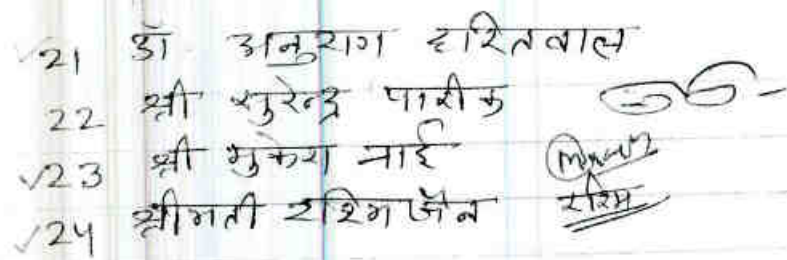 ✓21 डॉ अनुराग हरितवाल
22 श्री सुरेन्द्र पारीक
✓23 श्री मुकेश नाई
✓24 श्रीमती रश्मि जैन रश्मि